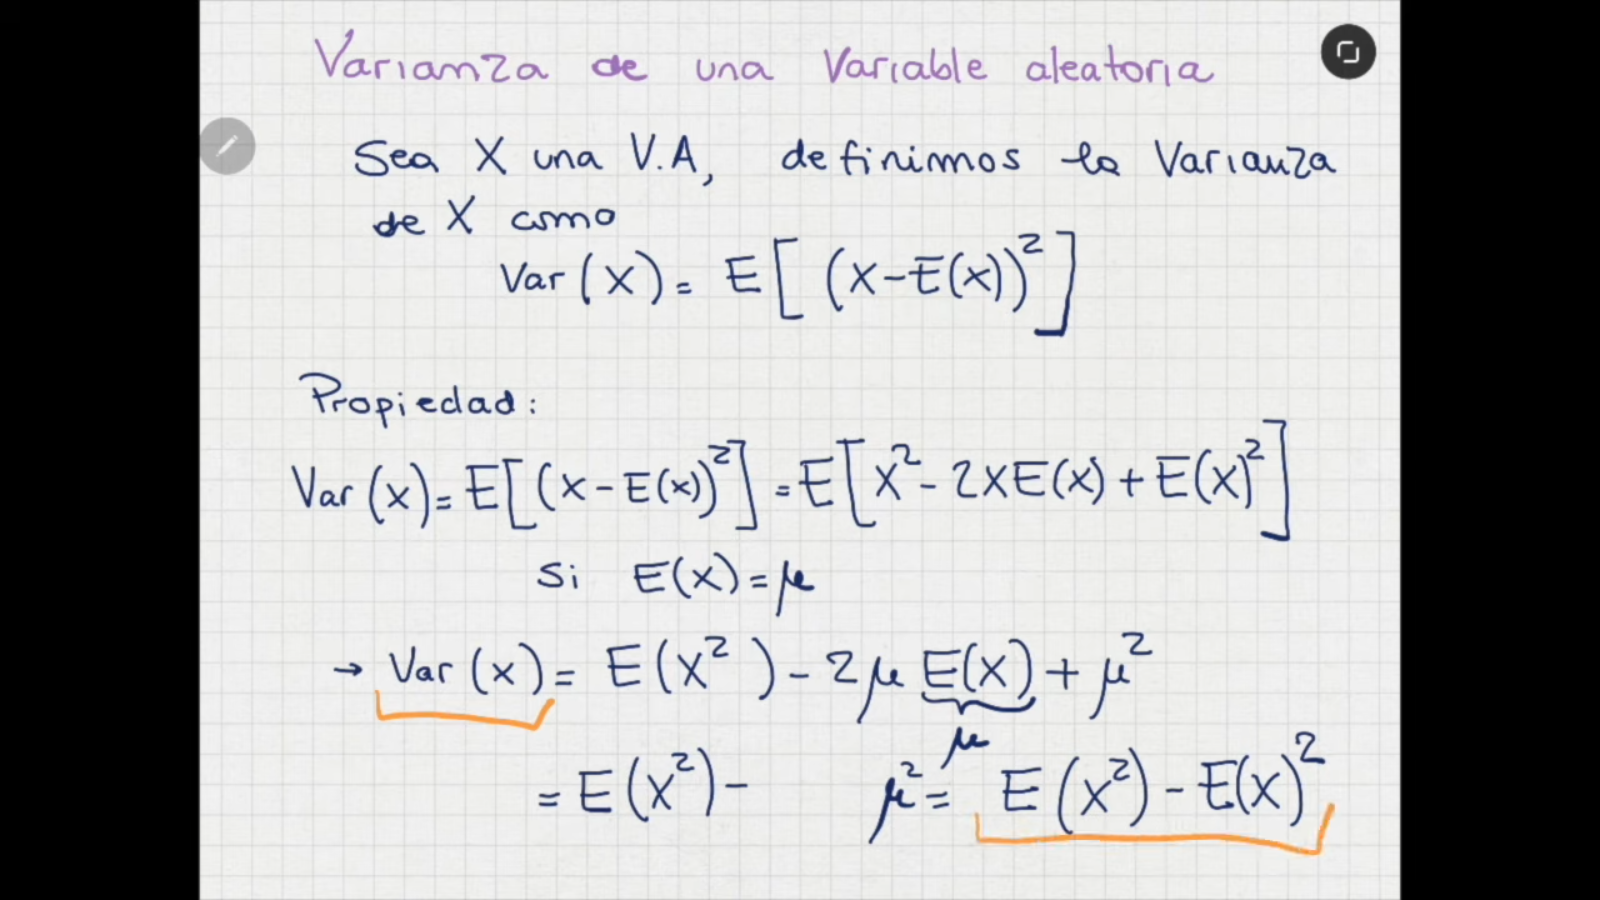 Varianza de una Variable aleatoria
Sea X una V.A, definimos la Varianza
de X como
Var(X) = E[(X-E(X))²]
Propiedad:
Var(X) = E[(X-E(X))²] = E[X² - 2XE(X) + E(X)²]
Si E(X) = μ
→ Var(X) = E(X²) - 2μ E(X) + μ²
μ
= E(X²) - μ² = E(X²) - E(X)²